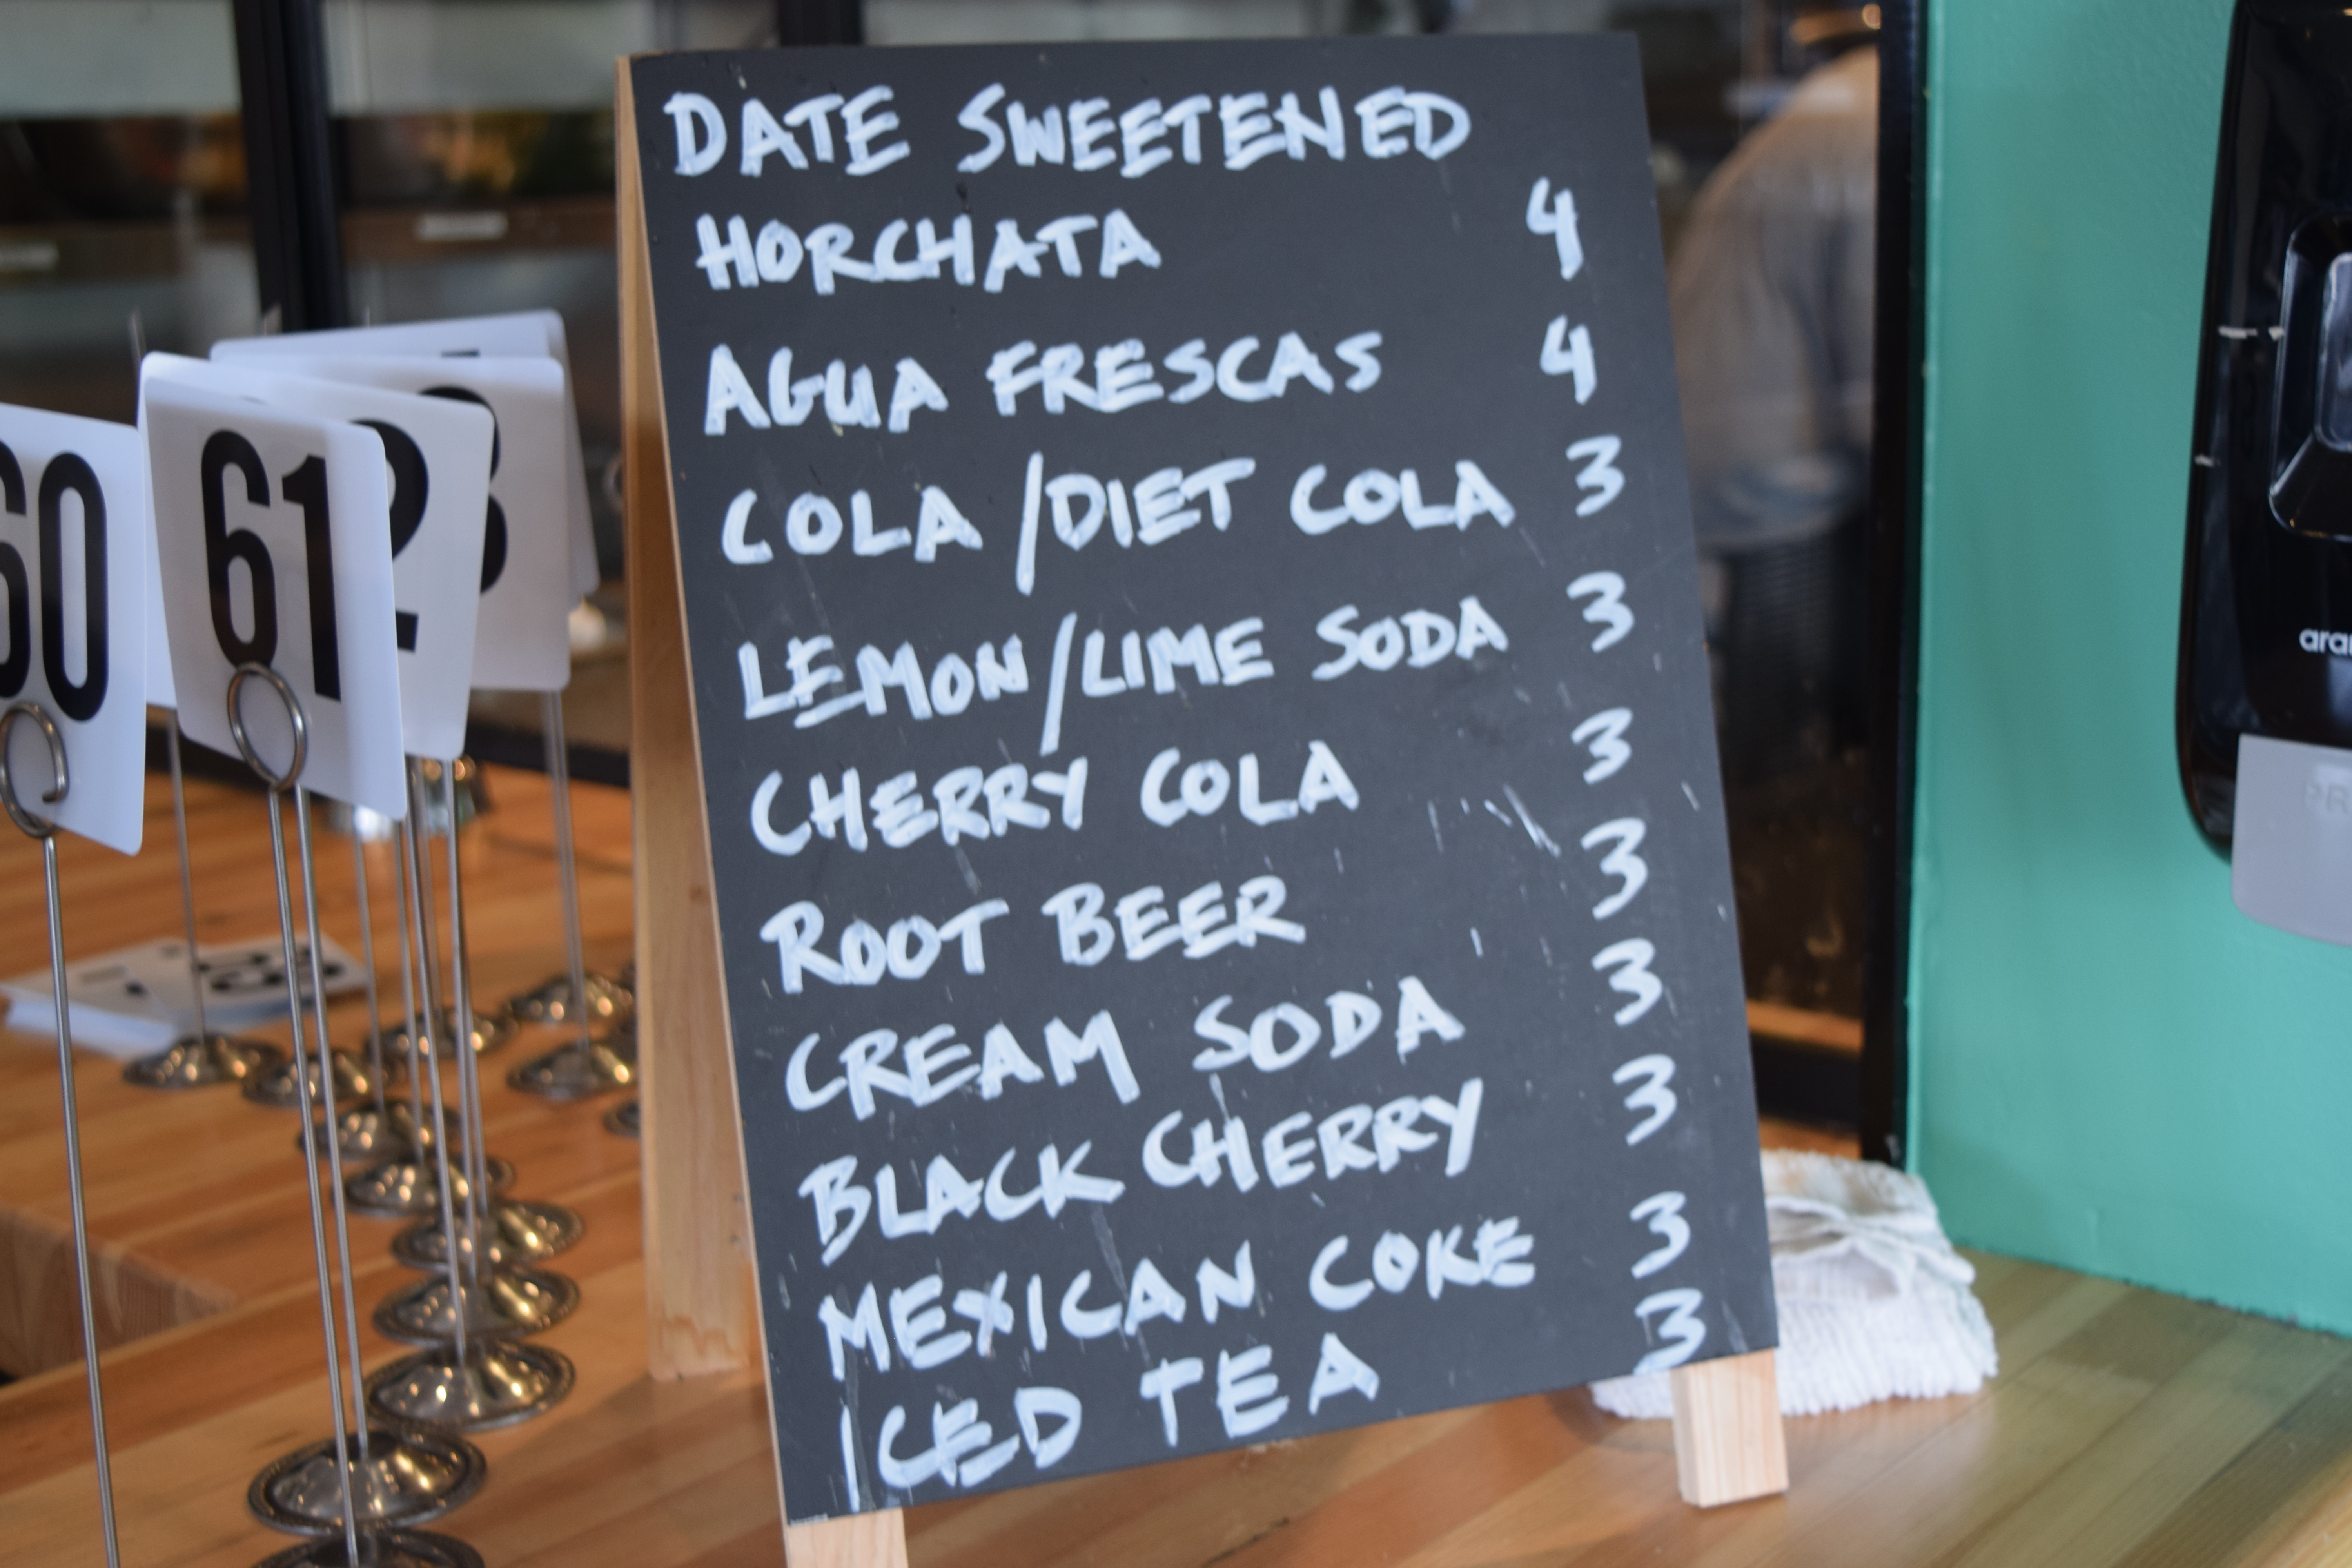 DATE SWEETENED
HORCHATA 4
AGUA FRESCAS 4
COLA/DIET COLA 3
LEMON/LIME SODA 3
CHERRY COLA 3
ROOT BEER 3
CREAM SODA 3
BLACK CHERRY 3
MEXICAN COKE 3
ICED TEA 3
60
61